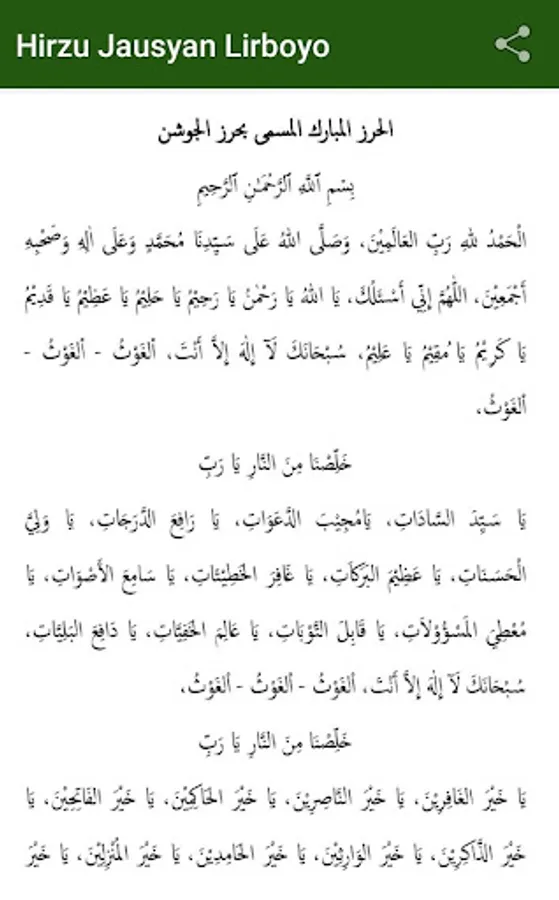 Hirzu Jausyan Lirboyo
الحرز المبارك المسمى بحرز الجوشن
بِسْمِ ٱللَّهِ ٱلرَّحْمَٰنِ ٱلرَّحِيمِ
الْحَمْدُ للهِ رَبِّ العَالَمِيْنَ، وَصَلَّى اللهُ عَلَى سَيِّدِنَا مُحَمَّدٍ وَعَلَى اٰلِهِ وَصَحْبِهِ
أَجْمَعِيْنَ، اللّٰهُمَّ إِنِّي أَسْئَلُكَ، يَا اللهُ يَا رَحْمٰنُ يَا رَحِيْمُ يَا حَلِيْمُ يَا عَظِيْمُ يَا قَدِيْمُ
يَا كَرِيْمُ يَا مُقِيْمُ يَا عَلِيْمُ، سُبْحَانَكَ لَآ إِلٰهَ إِلاَّ أَنْتَ، اَلغَوْثُ - اَلغَوْثُ -
اَلغَوْثُ،
خَلِّصْنَا مِنَ النَّارِ يَا رَبِّ
يَا سَيِّدَ السَّادَاتِ، يَامُجِيْبَ الدَّعَوَاتِ، يَا رَافِعَ الدَّرَجَاتِ، يَا وَلِيَّ
الْحَسَنَاتِ، يَا عَظِيْمَ البَرَكَاتِ، يَا غَافِرَ الخَطِيْئَاتِ، يَا سَامِعَ الأَصْوَاتِ، يَا
مُعْطِيَ المَسْؤُوْلاَتِ، يَا قَابِلَ التَّوْبَاتِ، يَا عَالِمَ الخَفِيَّاتِ، يَا دَافِعَ البَلِيَّاتِ،
سُبْحَانَكَ لَآ إِلٰهَ إِلاَّ أَنْتَ، اَلغَوْثُ - اَلغَوْثُ - اَلغَوْثُ،
خَلِّصْنَا مِنَ النَّارِ يَا رَبِّ
يَا خَيْرَ الغَافِرِيْنَ، يَا خَيْرَ النَّاصِرِيْنَ، يَا خَيْرَ الحَاكِمِيْنَ، يَا خَيْرَ الفَاتِحِيْنَ، يَا
خَيْرَ الذَّاكِرِيْنَ، يَا خَيْرَ الوَارِثِيْنَ، يَا خَيْرَ الحَامِدِيْنَ، يَا خَيْرَ المُنْزِلِيْنَ، يَا خَيْرَ